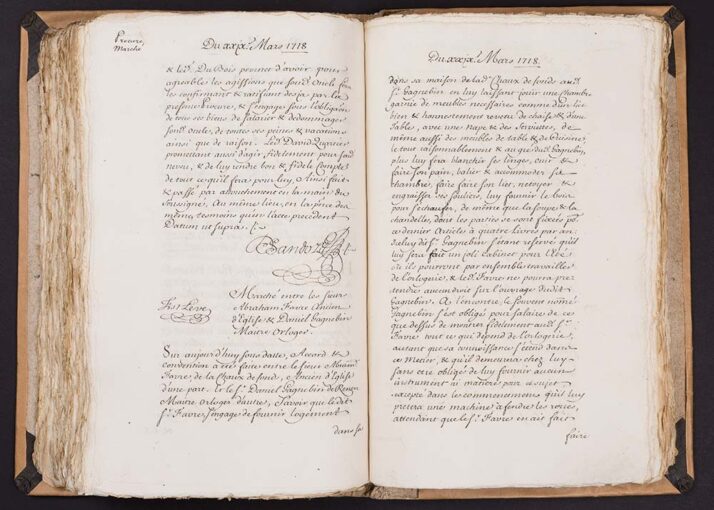 Procure,
Marché
Du xxix.e Mars 1718
& led. DuBois promet d'avoir pour
agreables les agissions que sond. oncle fera
les confirmant & ratifiant desja par la
presente Procure, & s'engage sous l'obligaon
de tous ses biens de salarier & dedommager
sond. oncle, de toutes ses peines & vacations
ainsi que de raison. Led. David
promettant aussi d'agir, fidelement pour sond.
neveu, & de luy rendre bon & fidele Compte
de tout ce qu'il fera pour luy. Ainsi fait
& passé par attouchement en la main du
Soussigné. Au même lieu, en la pnce des
mêmes tesmoins qu'en l'acte precedent
Datum ut supra.
Sandoz
Fist Leve
Marché entre les sieurs
Abraham Favre Ancien
d'Eglise & Daniel Gagnebin
Maitre Orloger
Sur aujourd'huy sous datté, Accord &
convention a été faite entre le sieur Abram
Favre de la Chaux de fonds, Ancien d'Eglise
d'une part. Et le Sr. Daniel Gagnebin de Renan
Maitre Orloger d'autre, sçavoir que le dit
Sr. Favre s'engage de fournir logement
dans sa
Du xxix.e Mars 1718.
dans sa maison de lad. Chaux de fonds aud.
Sr. Gagnebin en luy laissant jouir une chambre
garnie de meubles necessaires comme d'un lit
bien & honnestement revetu de chaise & d'une
table, avec une nape & des serviettes, de
même aussi des meubles de table & de cuisine
le tout raisonnablement & au gré dud. Gagnebin,
plus luy fera blanchir ses linges, cuir &
faire son pain, balier & accommoder sa
chambre, faire faire son lict, netoyer &
engraisser ses souliers, luy fournir le bois
pour s'echaufer, de même que la soupe & la
chandelle, dont les parties se sont fixées por
ce dernier Article à quatre Livres par an:
audelà dud. Sr. Gagnebin s'étant reservé qu'il
luy sera fait un joli Cabinet pour l'Eté
où ils pourront par ensemble travailler
de l'orlogerie, & led. Sr. Favre ne pourra pre-
tendre aucun droit sur l'ouvrage dudit
Gagnebin. A l'encontre, le souvent nommé
Gagnebin s'est obligé pour salaire de ce
que dessus de montrer fidelement aud. Sr.
Favre tout ce qui depend de l'orlogerie,
autant que sa connoissance s'etend dans
ce Metier, & qu'il demeurera chez luy
sans etre obligé de luy fournir aucun
instrument ni matiere pour ce sujet
excepté dans les commencemens qu'il luy
pretera une machine à fendre les roües,
attendant que le Sr. Favre en ait fait
faire